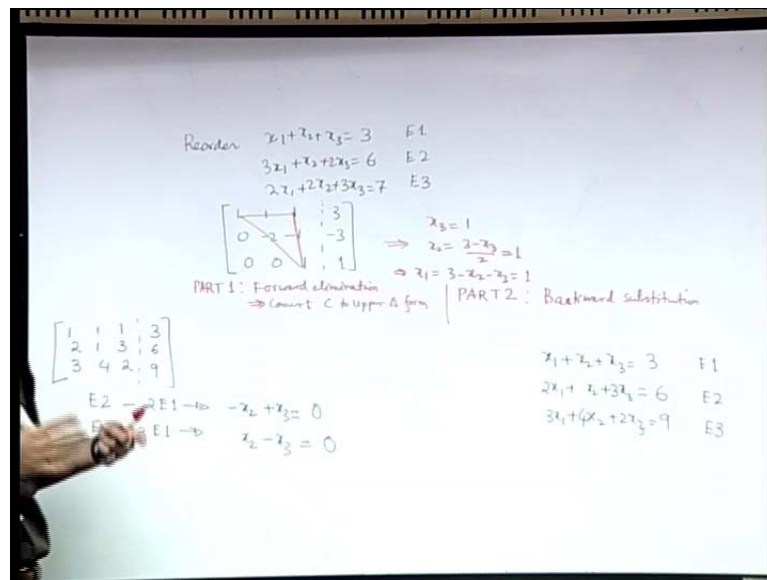 Reorder x₁+x₂+x₃= 3 E1
3x₁+x₂+2x₃=6 E2
2x₁+2x₂+3x₃=7 E3
1 1 1 3
0 -2 -1 -3
0 0 1 1
x₃=1
⇒ x₂= 3-x₃/2 =1
⇒ x₁= 3-x₂-x₃=1
PART 1: Forward elimination
⇒ Convert C to Upper Δ form
PART 2: Backward substitution
1 1 1 3
2 1 3 6
3 4 2 9
E2 - 2E1 → -x₂+x₃= 0
E E1 → x₂-x₃= 0
x₁+x₂+x₃= 3 E1
2x₁+ x₂+3x₃=6 E2
3x₁+4x₂+2x₃=9 E3